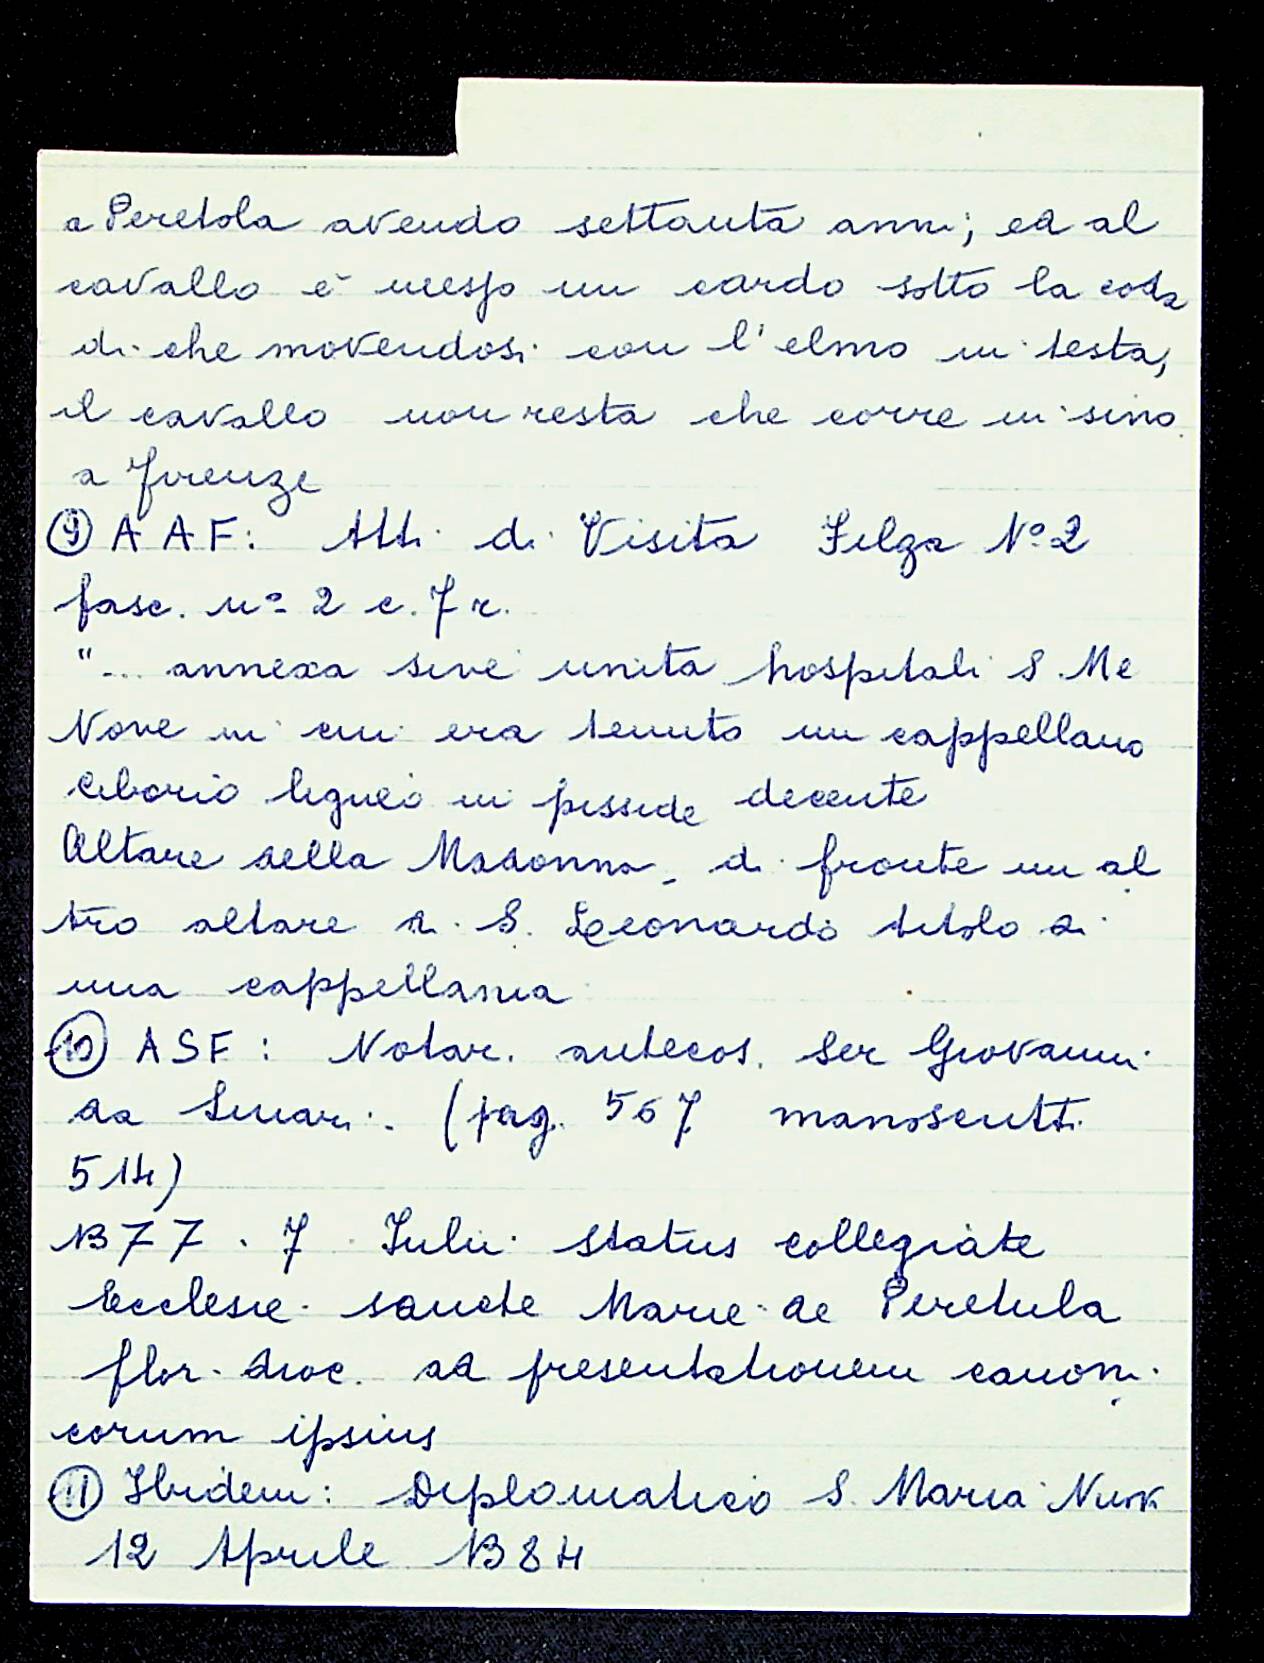 a Peretola avendo settanta anni; ed al
cavallo è messo un cardo sotto la coda
di che movendosi con l'elmo in testa,
il cavallo non resta che corre in sino
a Firenze
⑨ A A F: Atti di Visita Filza Nº 2
fasc. nº 2 c. 7 r.
"... annexa sive unita hospitali S. Me
Nove in cui era tenuto un cappellano
Ciborio ligneo in pisside decente
Altare della Madonna - di fronte un al
tro altare di S. Leonardo titolo di
una cappellania
⑩ A S F: Notar. antecos. Ser Giovanni
da Linari. (pag. 567 manoscritti
514)
1377. 7 Iulii status collegiate
Ecclesie sancte Marie de Peretula
flor. dioc. ad presentationem canoni
corum ipsius
⑪ Ibidem: Diplomatico S. Maria
12 Aprile 1384